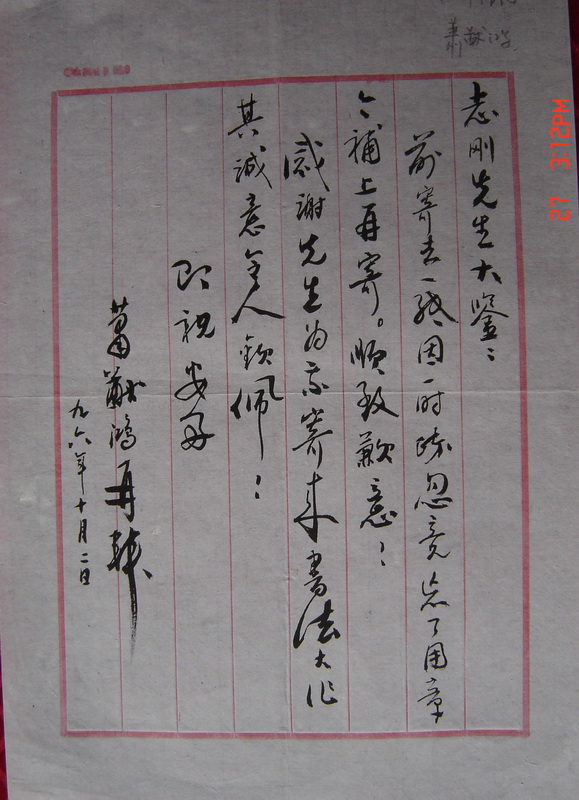 志刚先生大鉴：
前寄去一张因一时疏忽竟忘了用章
今补上再寄。顺致歉意！
感谢先生为我寄来书法大作
其诚意令人钦佩！
即祝安好
萧献鸿再拜
九六年十月二日
27 3:12PM